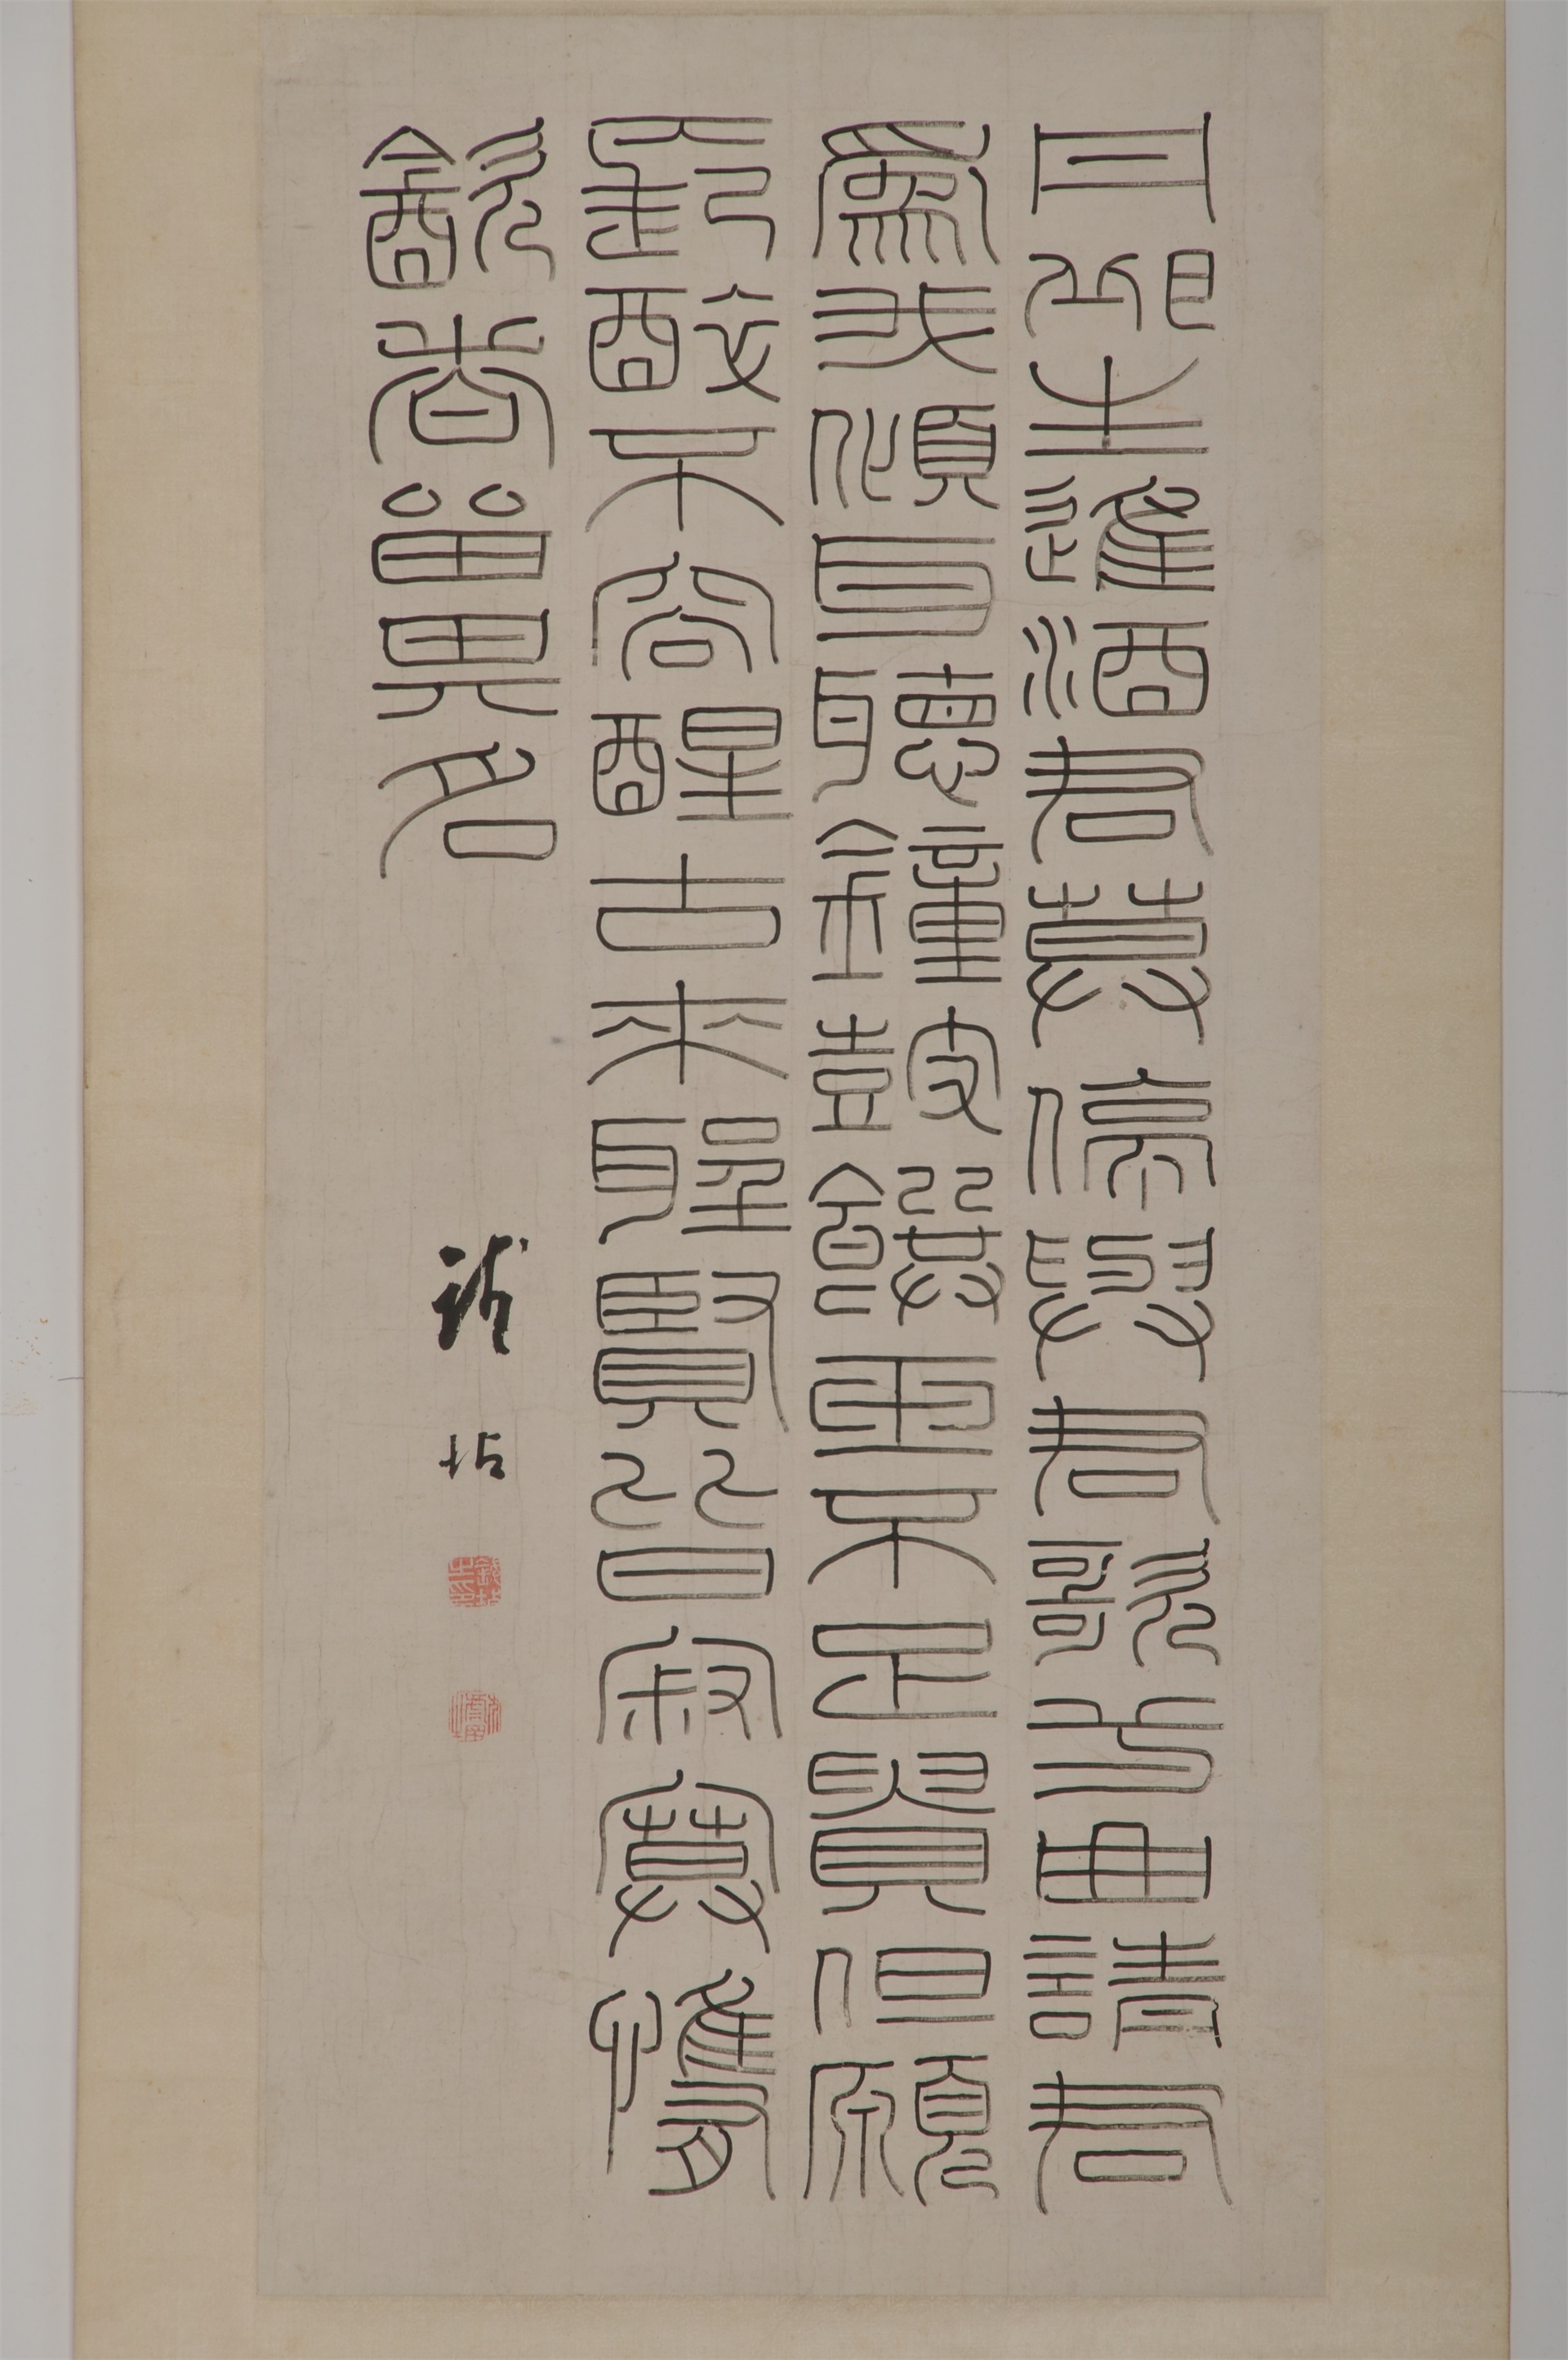 丹邱生進酒君莫停與君歌弌曲請君
為我傾耳聽鐘鼓饌玉不足貴但願
長醉不容醒古來聖賢皆寂寞惟有
飲者留其名
錢坫
錢坫之印